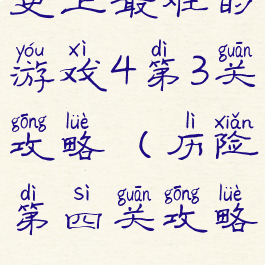 史上最难的
yóu xì dì guān
游戏4第3关
gōng lüè lì xiǎn
攻略(历险
dì sì guān gōng lüè
第四关攻略